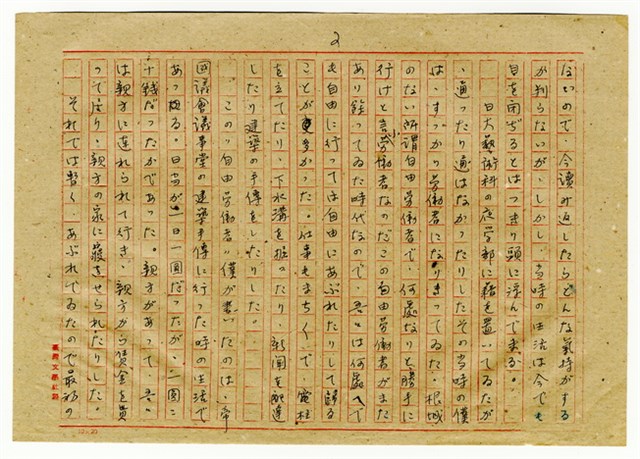 2
ないので、今讀み返したらどんな氣持がする
か判らないが、しかし、当時の生活は今でも
目を閉ぢるとはっきり頭に浮んで来る。
日大藝術科の夜学部に籍を置いてゐたが
、通ったり通はなかったりしたその当時の僕
は、すっかり労働者になりきってゐた。根城
のない所謂自由労働者で、何處なりと勝手に
行けと言ふ労働者なのだこの自由労働者がまた
あり餘ってゐた時代なので、吾々は何處へで
も自由に行っては自由にあぶれたりして歸る
ことが多かった。仕事もまちまちで、電柱
を立てたり、下水溝を掘ったり、新聞を配達
したり建築の手傳をしたりした。
この〝自由労働者〟僕が書いたのは、帝
国議會議事堂の建築手傳に行った時の生活で
あった。日当が一日一圓だったか、一圓二
十銭だったかであった。親方があって、吾々
は親方に連れられて行き、親方から賃金を貰
って戻り、親方の家に寢させられたりした。
それでは暫く、あぶれてゐたので最初の